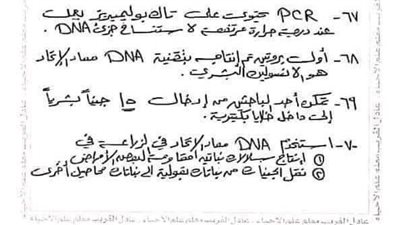 ٦٧- PCR تحتوي على تاك بوليميريز يعمل
عند درجة حرارة مرتفعة لاستنساخ جزئ DNA.
٦٨- أول بروتين تم إنتاجه بتقنية DNA معاد الإتحاد
هو الانسولين البشري.
٦٩- تمكن أحد الباحثين من إدخال ١٥ جيناً بشرياً
إلى داخل خلايا بكتيرية.
٧٠- استخدم DNA معاد الإتحاد في الزراعة في
① إنتاج سلالات نباتية مقاومة لبعض الأمراض
② نقل الجينات من نباتات بقولية إلى نباتات محاصيل أخرى
عادل الغريب معلم علم الاحياء